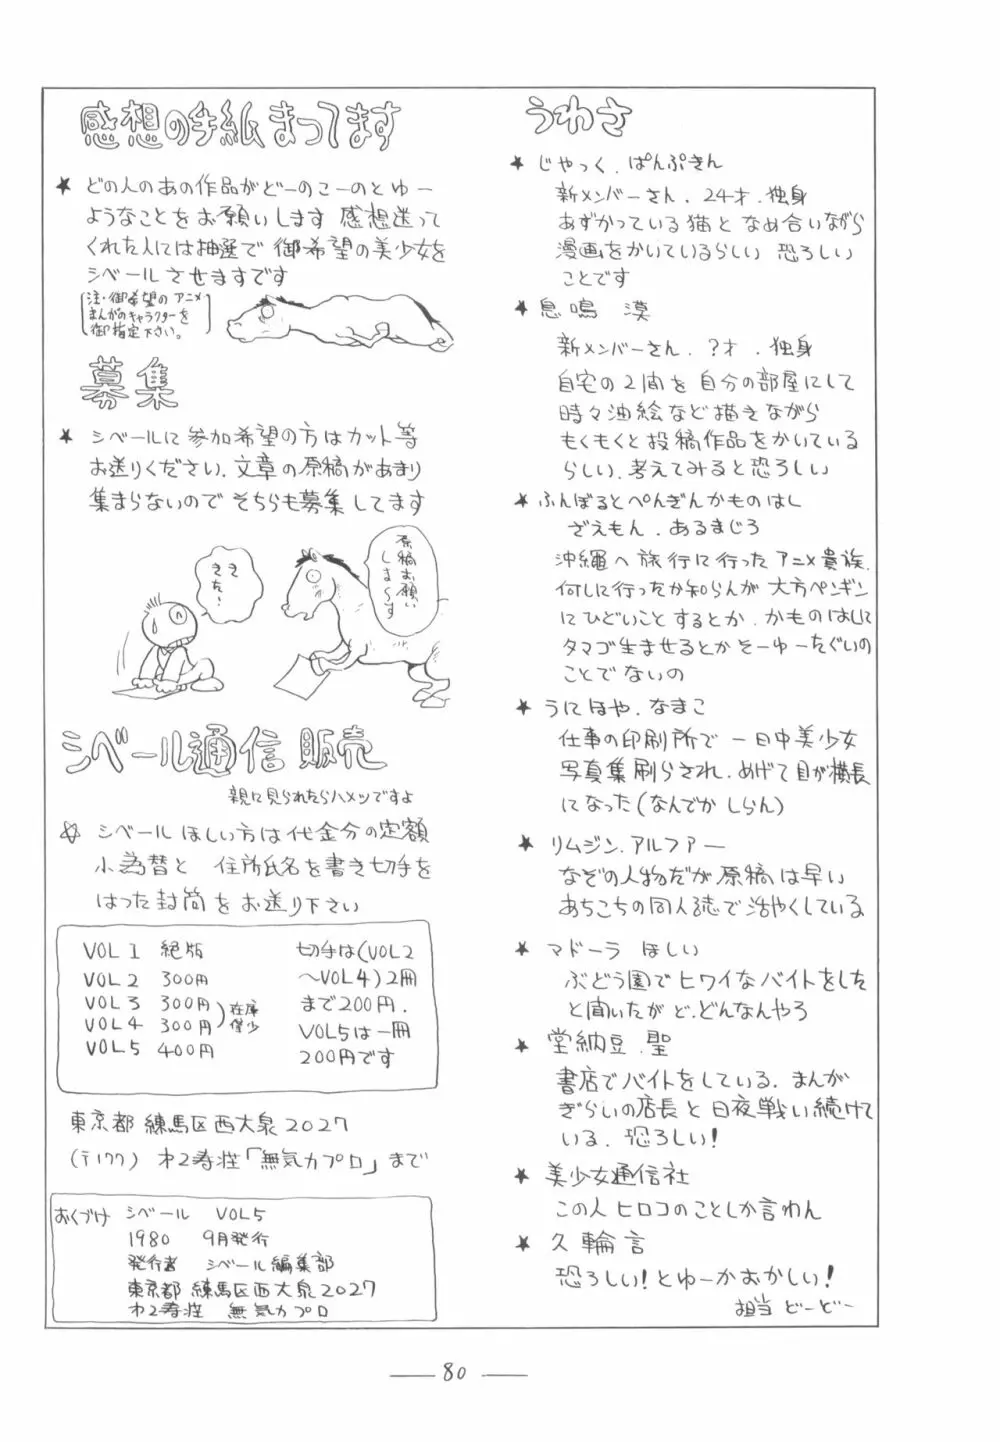 感想の手紙まってます
★ どの人のあの作品がどーのこーのとゆー
ようなことをお願いします 感想送って
くれた人には抽選で 御希望の美少女を
シベールさせますです
注・御希望のアニメ
まんがのキャラクターを
御指定下さい。
募集
★ シベールに参加希望の方はカット等
お送りください. 文章の原稿があまり
集まらないので そちらも募集してます
原稿お願い
しま〜す
きた〜
シベール通信販売
親に見られたらハメツですよ
☆ シベールほしい方は代金分の定額
小為替と 住所氏名を書き切手を
はった封筒をお送り下さい
VOL1 絶版
VOL2 300円
VOL3 300円
VOL4 300円
在庫
僅少
VOL5 400円
切手は(VOL2
〜VOL4)2冊
まで200円.
VOL5は一冊
200円です
東京都練馬区西大泉2027
(〒177) 才2寿荘「無気力プロ」まで
おくづけ シベール VOL5
1980 9月発行
発行者 シベール編集部
東京都練馬区西大泉2027
才2寿荘 無気力プロ
うわさ
★ じゃっく.ぱんぷきん
新メンバーさん. 24才.独身
あずかっている猫と なめ合いながら
漫画をかいているらしい 恐ろしい
ことです
★ 息鳴 漠
新メンバーさん. ?才 . 独身
自宅の2間を自分の部屋にして
時々油絵など描きながら
もくもくと投稿作品をかいている
らしい. 考えてみると恐ろしい
★ ふんぼるとぺんぎんかものはし
ざえもん . あるまじろ
沖縄へ旅行に行ったアニメ貴族.
何しに行ったか知らんが 大方ペンギン
にひどいことするとか. かものはしに
タマゴ生ませるとかそーゆーたぐいの
ことでないの
★ うにほや. なまこ
仕事の印刷所で 一日中美少女
写真集刷らされ. あげて目が横長
になった(なんでかしらん)
★ リムジン.アルファー
なぞの人物だが原稿は早い
あちこちの同人誌で活やくしている
★ マドーラ ほしい
ぶどう園でヒワイなバイトをした
と聞いたが ど.どんなんやろ
★ 堂納豆.聖
書店でバイトをしている. まんが
ぎらいの店長と日夜戦い続けて
いる. 恐ろしい!
★ 美少女通信社
この人ヒロコのことしか言わん
★ 久輪言
恐ろしい!とゆーかおかしい!
担当 どーどー
— 80 —